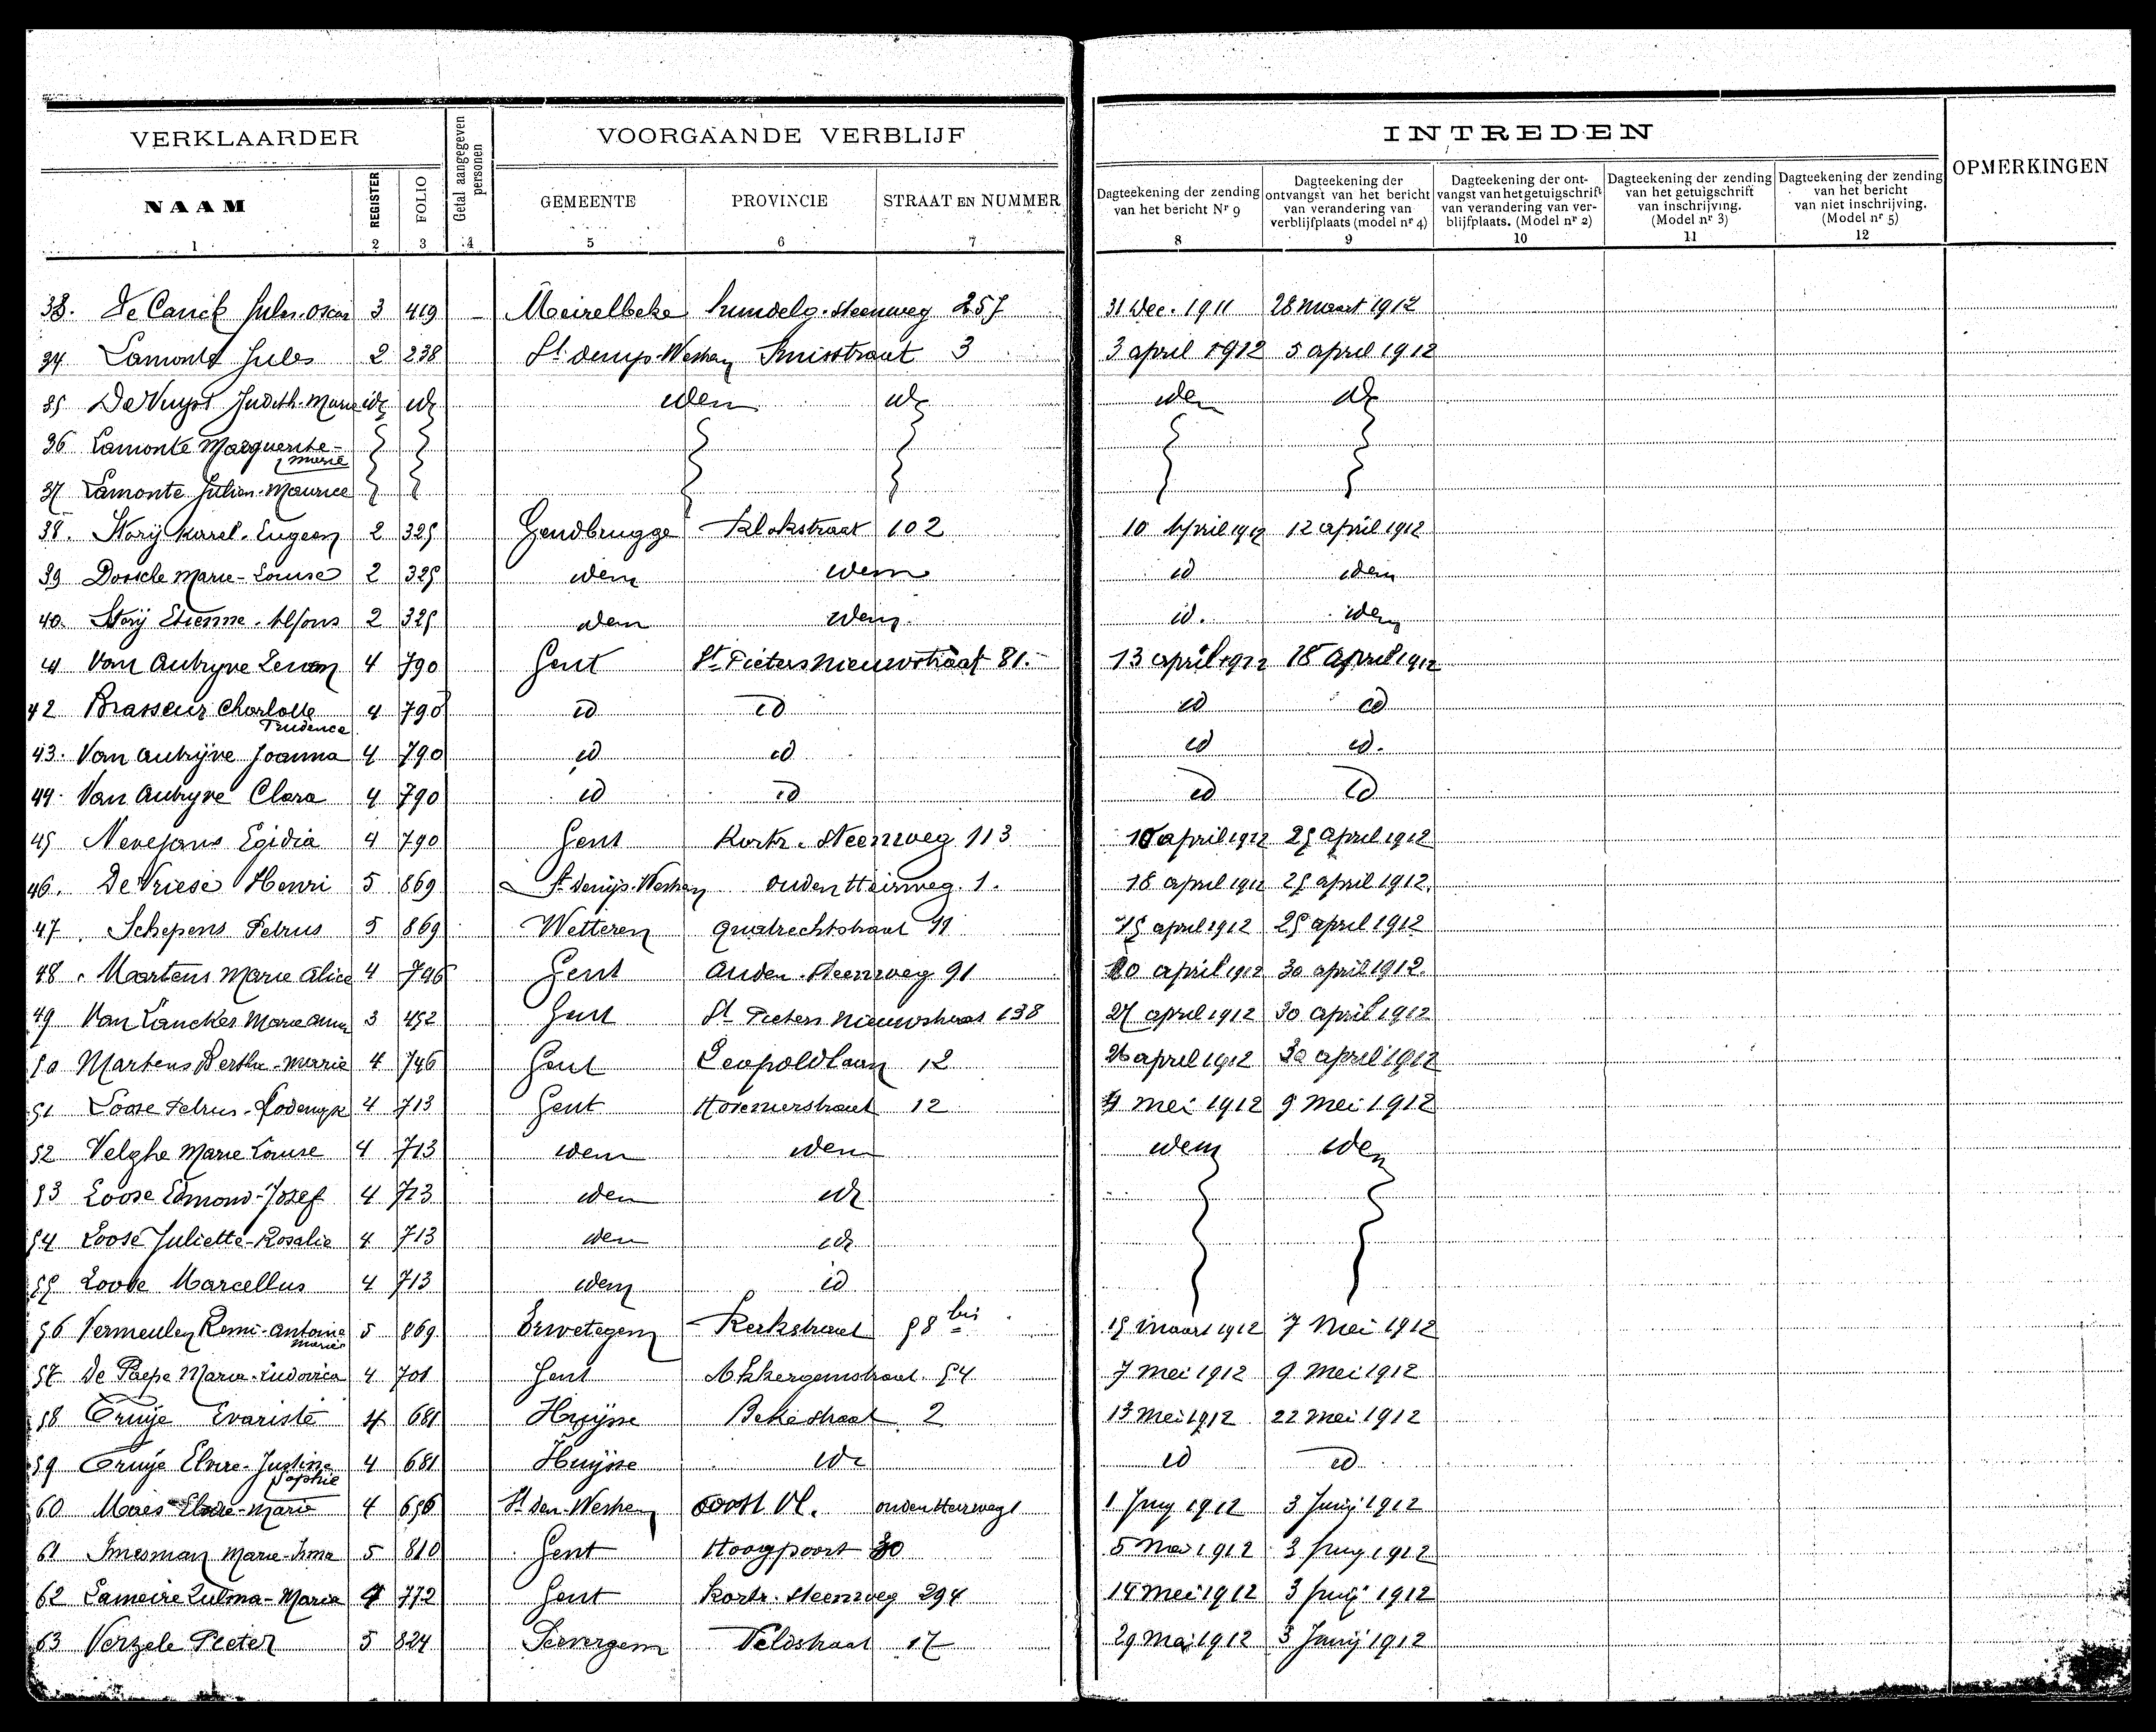 VERKLAARDER
Getal aangegeven personen
VOORGAANDE VERBLIJF
INTREDEN
OPMERKINGEN
NAAM
REGISTER
FOLIO
GEMEENTE
PROVINCIE
STRAAT EN NUMMER
Dagteekening der zending van het bericht Nr 9
Dagteekening der ontvangst van het bericht van verandering van verblijfplaats (model nr 4)
Dagteekening der ont-vangst van het getuigschrift van verandering van ver-blijfplaats. (Model nr 2)
Dagteekening der zending van het getuigschrift van inschrijving. (Model nr 3)
Dagteekening der zending van het bericht van niet inschrijving. (Model nr 5)
1 2 3 4 5 6 7 8 9 10 11 12
33. De Canck Jules-Oscar 3 419 Meirelbeke Hundelg. Steenweg 257 31 Dec. 1911 28 maart 1912
34 Lamonte Jules 2 238 St denijs-Westrem 3 3 april 1912 5 april 1912
35 De Vuyst Judith-Marie id id idem id idem id
36 Lamonte Marguerite-Marie
37 Lamonte Julien-Maurice
38. Storij Karel-Eugeen 2 325 Gendbrugge Klokstraat 102 10 April 1912 12 april 1912
39 Marie-Louise 2 325 idem idem id idem
40. Storij Etienne-Alfons 2 325 idem idem id. idem
41 Van Autryve 4 790 Gent St Pieters Nieuwstraat 81. 13 april 1912 18 April 1912
42 Brasseur Charlotte Prudence 4 790 id id id id
43. Van Autrijve Joanna 4 790 id id id id.
44. Van Autryve Clara 4 790 id id id id
45 Nevejans Egidia 4 790 Gent Kortr. Steenweg 113 10 april 1912 25 April 1912
46. De Vriese Henri 5 869 St denijs-Westrem ouden Heirweg 1. 18 april 1912 25 april 1912.
47 Schepens Petrus 5 869 Wetteren Quatrechtstraat 11 15 april 1912 25 april 1912
48. Martens Marie Alice 4 746 Gent Auden. Steenweg 91 20 april 1912 30 april 1912.
49 Van Lancker Marie Anna 3 452 Gent St Pieters Nieuwstraat 138 27 april 1912 30 april 1912
50 Martens Bertha-Marie 4 746 Gent Leopoldlaan 12 26 april 1912 30 april 1912
51 Loose Petrus-Lodewyk 4 713 Gent 12 4 Mei 1912 9 Mei 1912
52 Velghe Marie Louise 4 713 idem idem idem idem
53 Loose Edmond-Jozef 4 713 idem id
54 Loose Juliette-Rosalie 4 713 idem id
55 Loose Marcellus 4 713 idem id
56 Vermeulen Remi-Antoine Marie 5 869 Erwetegem Kerkstraat 58 bis 15 maart 1912 7 Mei 1912
57 De Paepe Maria-Ludovica 4 701 Gent Akkergemstraat 54 7 mei 1912 9 Mei 1912
58 Truije Evariste 4 681 Huijsse Bekestraat 2 13 mei 1912 22 mei 1912
59 Truije Elvire-Justine Sophie 4 681 Huijsse id id id
60 Maes Elodie-Marie 4 656 St den-Westrem Oost Vl. ouden Heirweg 1 1 Juny 1912 3 Junij 1912
61 Imesman Marie-Irma 5 810 Gent Hoogpoort 30 5 Mei 1912 3 Juny 1912
62 Lameire Zulma-Maria 4 772 Gent Kortr. Steenweg 294 14 mei 1912 3 Junij 1912
63 Verzele Pieter 5 824 Seevergem Veldstraat 17 29 Mai 1912 3 Junij 1912